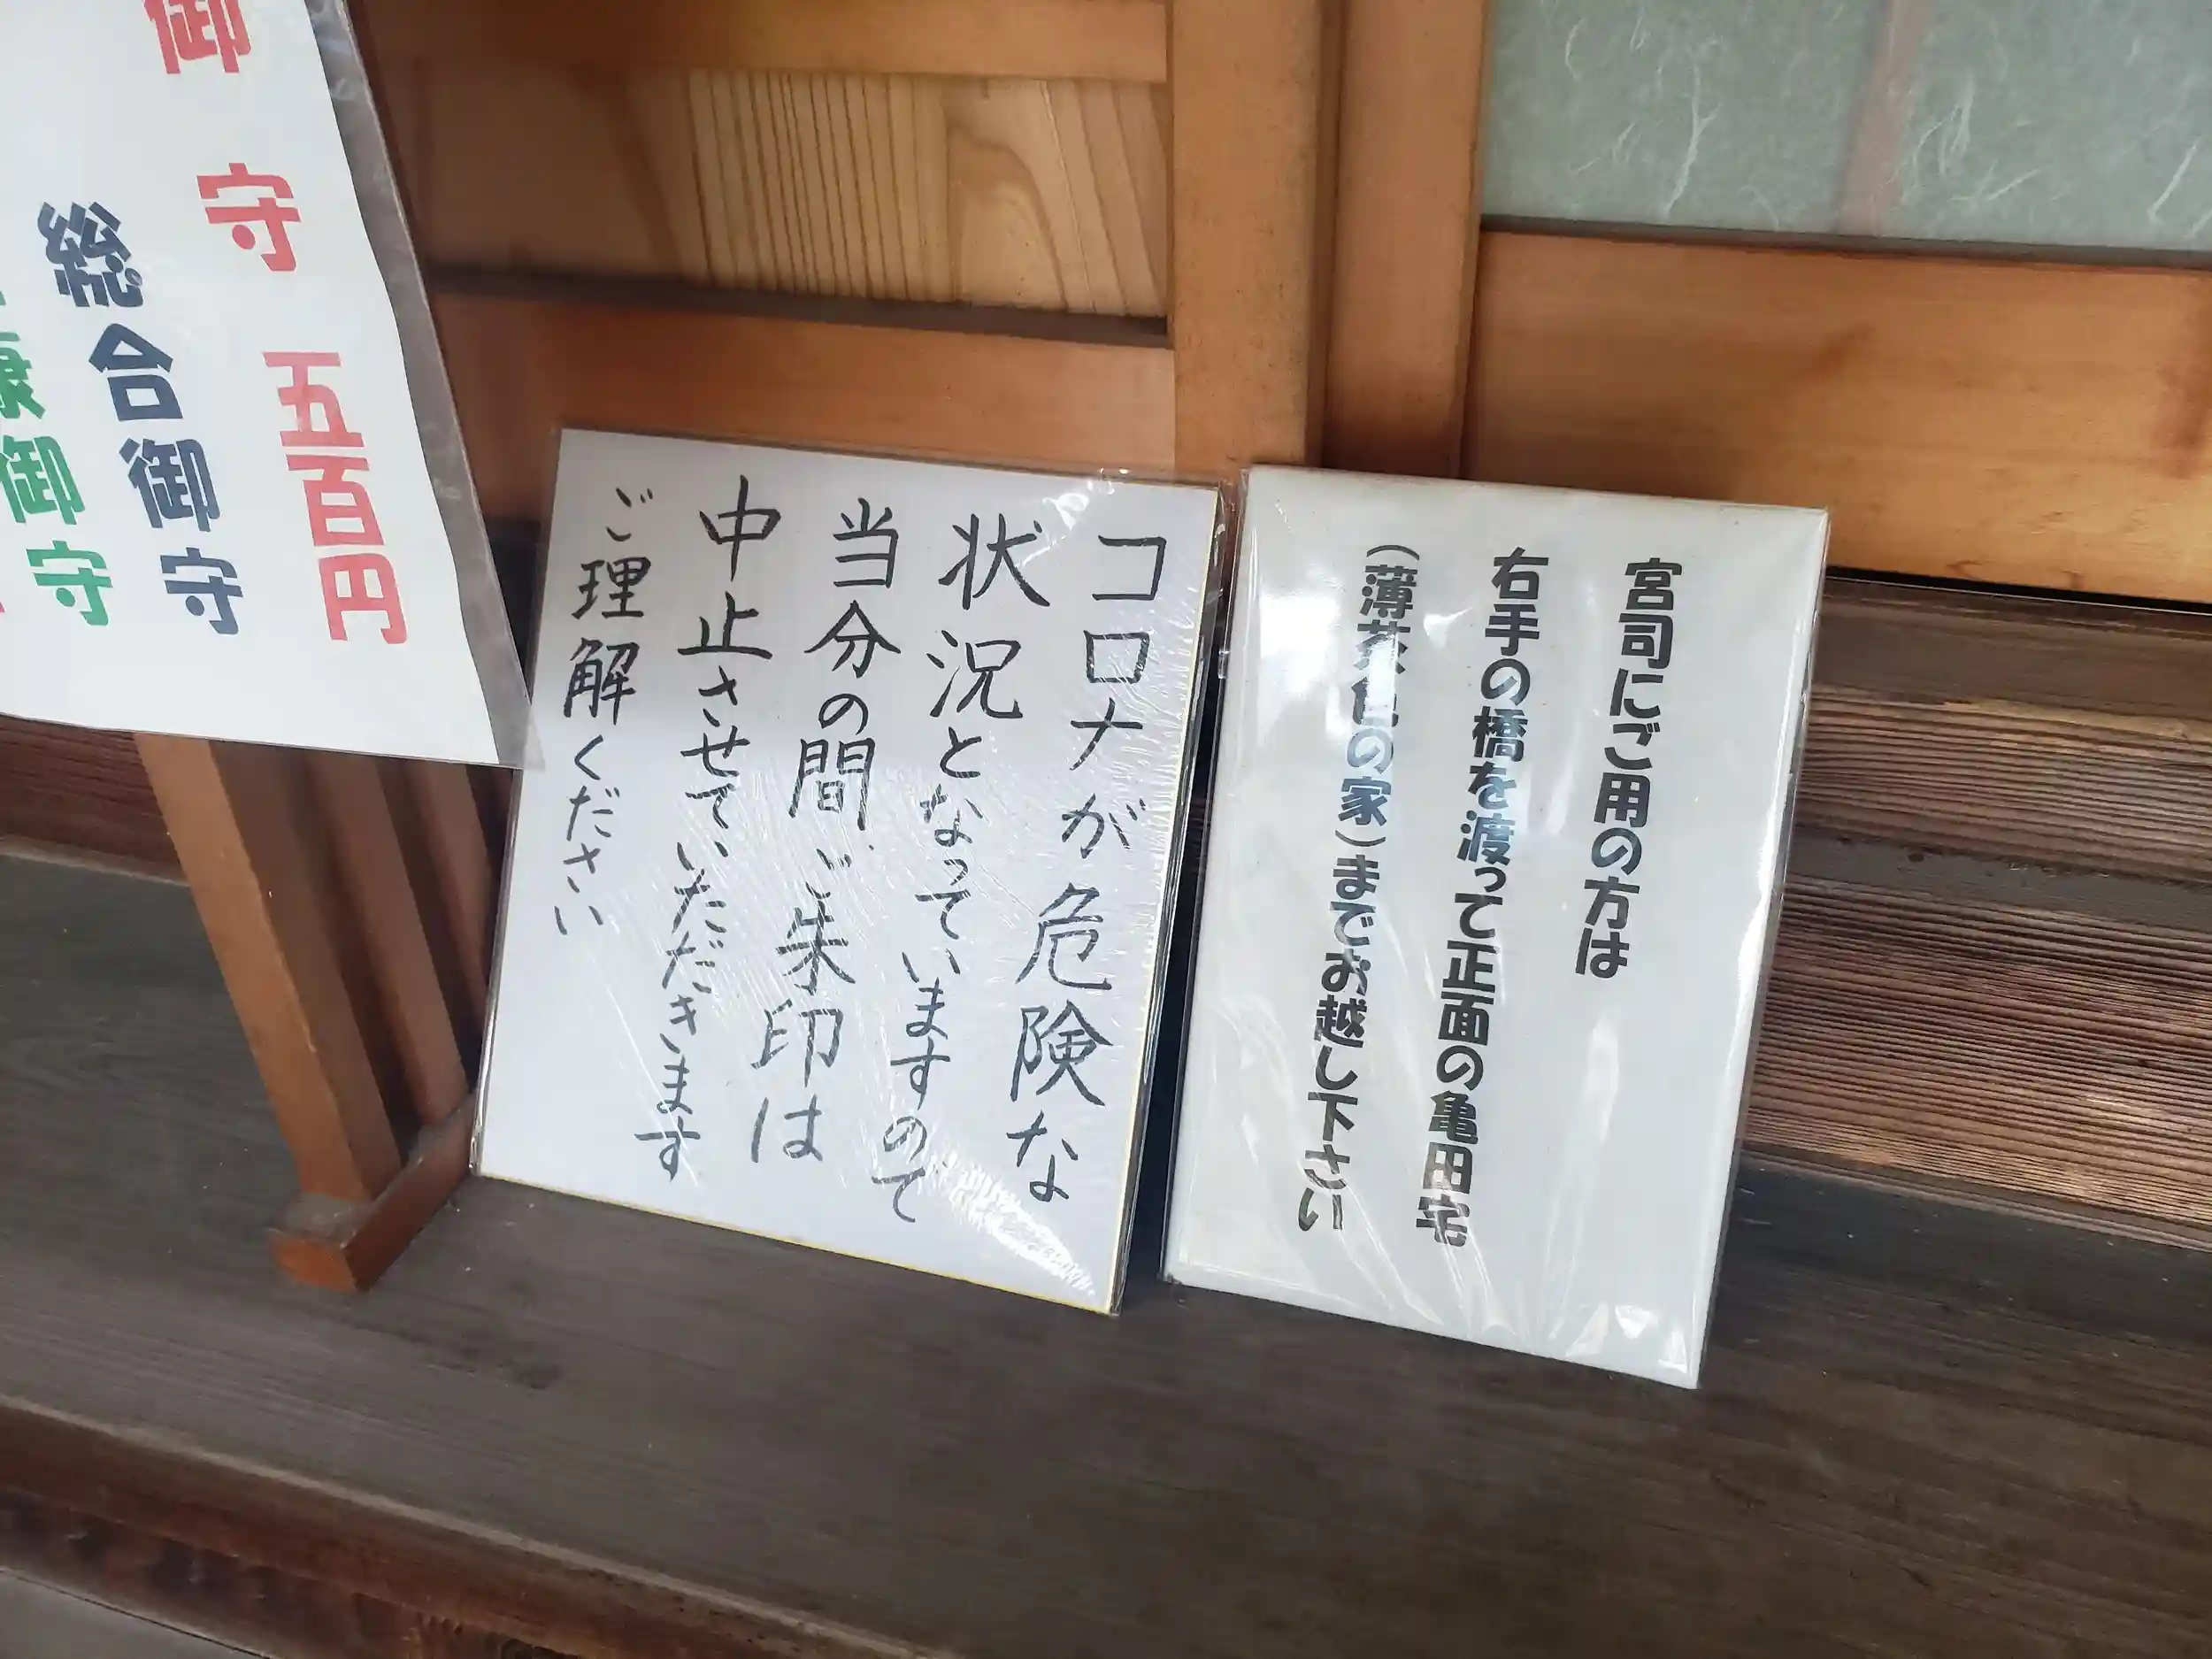 宮司にご用の方は
右手の橋を渡って正面の亀田宅
(薄茶色の家)までお越し下さい
コロナが危険な
状況となっていますので
当分の間ご朱印は
中止させていただきます
ご理解ください
御守 五百円
総合御守
康御守